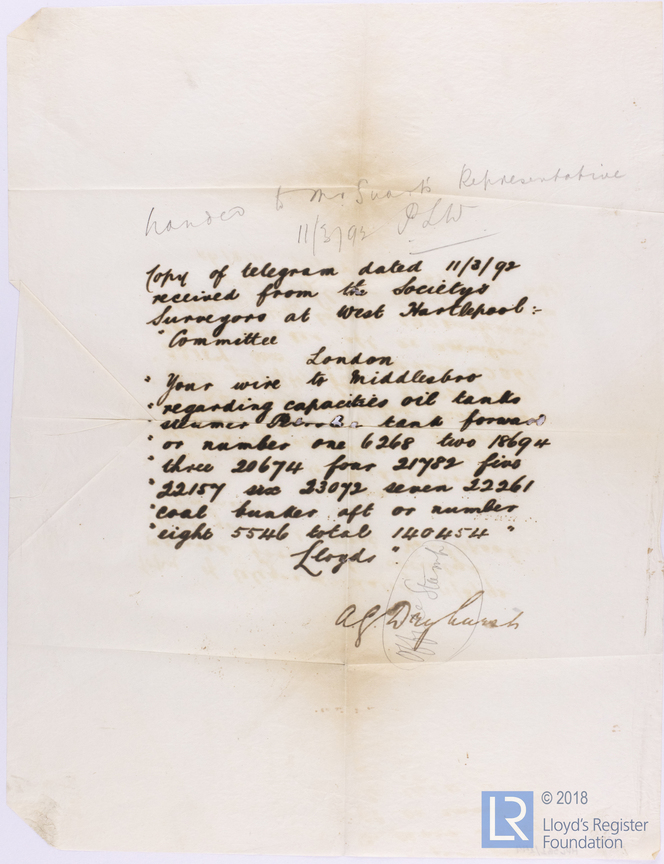 handed to Mr Representative
11/3/92
Copy of telegram dated 11/3/92
received from the Societys
Surveyors at West Hartlepool :-
"Committee
London
" Your wire to Middlesbro
" regarding capacities oil tanks
" steamer tank forward
" or number one 6268 two 18694
" three 20674 four 21782 five
" 22157 six 23072 seven 22261
" coal bunker aft or number
" eight 5546 total 140454 "
Lloyds "
Office Stamp
A G Dryhurst
LR
© 2018
Lloyd's Register
Foundation